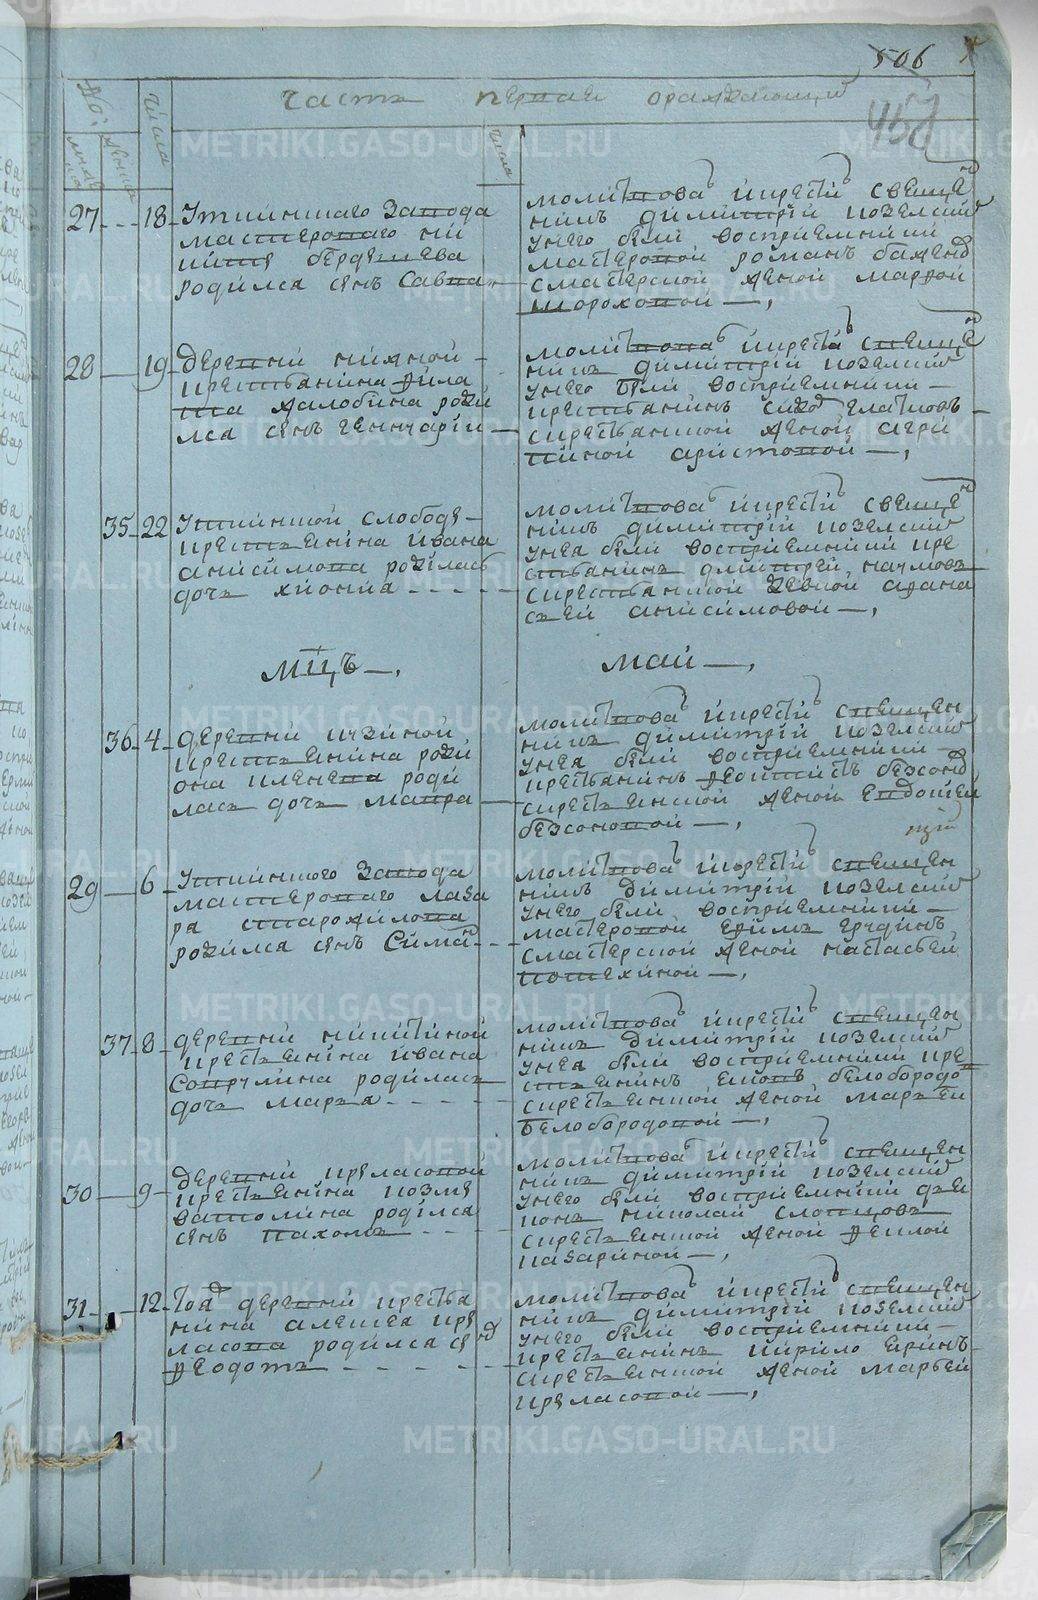 506
457
часть первая о раждающи
числа
числа
27 18 Уткинскаго завода
мастероваго ни
родился сынъ Савва
молитвова и крести свеще
никъ димитрїи козелскии
у него были восприемники
мастеровой романъ бажено
с мастерской женой марфой
шороховой
28 19 деревни нижной
крестьянина фила
та жалобина роди
лся сынъ генчарїи
молитвова и крести свеще
никъ димитрїи козелскии
у него были восприемники
крестьянинъ
с крестьянкой женой агри
пиной аристовой
35 22 Уткинской слободы
крестьянина ивана
анисимова родилась
дочь хиониа
молитвова и крести свеще
никъ димитрїи козелскии
у нея были восприемники кре
стьянинъ дмитрей наумовъ
с крестьянской девкой афана
сьей анисимовой
мцъ май
36 4 деревни
крестьянина роди
она пленева роди
лась дочь мавра
молитвова и крести свещен
никъ димитрїи козелскии
у нея были восприемники
крестьянинъ феоктистъ безсоно
с крестьянской женой евдокией
безсоновой
29 6 Уткинского завода
мастероваго лаза
ря старожилова
родился сынъ Симао
молитвова и крести свещен
никъ димитрїи козелскии
у него были восприемники
мастеровой ефимъ
с мастерской женой настасьей
потехиной
37 8 деревни никитиной
крестьянина ивана
сопрулина родилась
дочь марья
молитвова и крести свещен
никъ димитрїи козелскии
у нея были восприемники кре
стьянинъ белобородо
с крестьянской женой марьей
белобородовой
30 9 деревни крыласовой
крестьянина козмы
ватолина родился
сынъ пахомъ
молитвова и крести свещен
никъ димитрїи козелскии
у него были восприемники дья
конъ николай словцовъ
с крестьянской женой феклой
назариной
31 12 Тоя деревни крестья
нина алексея кры
ласова родился сы
феодотъ
молитвова и крести свещен
никъ димитрїи козелскии
у него были восприемники
крестьянинъ кирило
с крестьянской женой марьей
крыласовой
METRIKI.GASO-URAL.RU